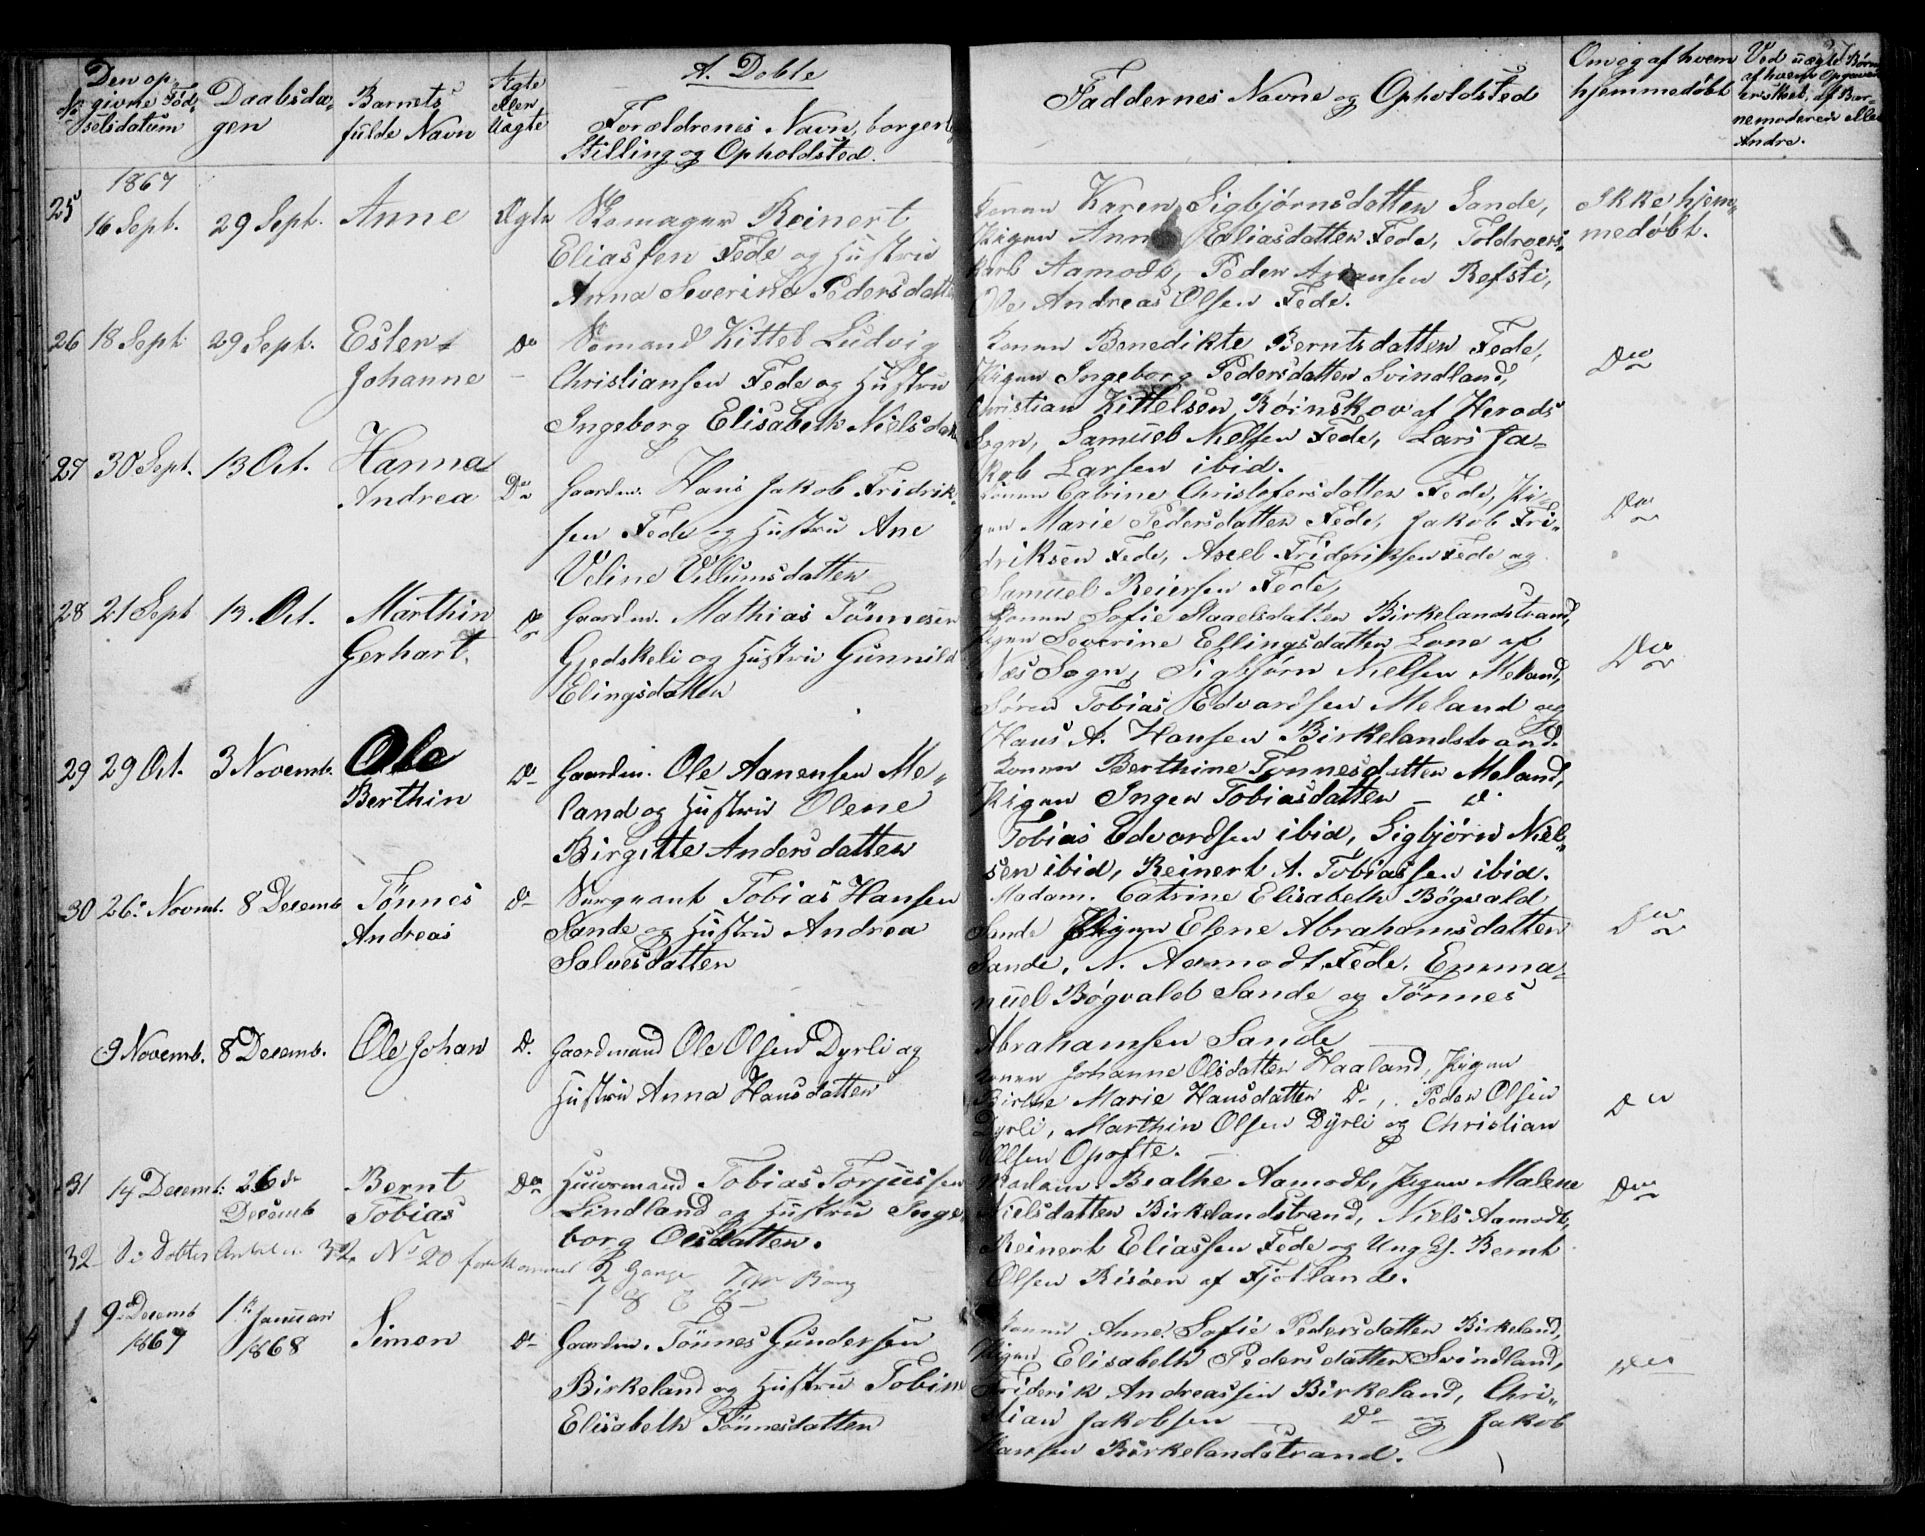 A. Døbte
No
Den op-
givne Fød-
selsdatum
Daabsda-
gen
Barnets
fulde Navn
Ægte
eller
Uægte
Forældrenes Navn, borgerl
Stilling og Opholdsted.
Faddernes Navne og Opholdsted
Om og af hvem
hjemmedøbt
Ved uægte Børn
af hvem Opgaven
er skeet, af Bar-
nemoderen eller
Andre.
1867
25
16 Sept.
29 Sept.
Anne
Ægte
Skomager Reinert
Eliassen Fede og Hustru
Anna Severine Pedersdatter
Konen Karen Sigbjørnsdatter Sande,
Pigen Anne Eliasdatter Fede, Toldroers-
karl Aamodt, Peder Arianssen Refsti,
Ole Andreas Olsen Fede.
Ikke hjem-
medøbt.
26
18 Sept
29 Sept.
Ester
Johanne
Do
Sømand Kittel Ludvig
Christiansen Fede og Hustru
Ingeborg Elisabeth Nielsdatt
Konen Benedikte Berntsdatter Fede,
Pigen Ingeborg Pedersdatter Svindland,
Christian Kittelsen, Røinskov af Herads
Sogn, Samuel Nielsen Fede, Lars Ja-
kob Larsen ibid.
Do
27
30 Sept.
13 Oct.
Hanna
Andrea
Do
Gaardm. Hans Jakob Fridrik-
sen Fede og Hustru Ane
Veline Villumsdatter
Konen Catrine Christofersdatter Fede, Pi-
gen Marie Pedersdatter Fede, Jakob Fri-
driksen Fede, Axel Frideriksen Fede og
Samuel Reiersen Fede,
Do
28
21 Sept
13. Oct.
Marthin
Gerhart.
Do
Gaardm. Mathias Tønnesen
Gjedskeli og Hustru Gunnild
Elingsdatter
Konen Sofie Staaelsdatter Birkelandstrand,
Pigen Severine Ellingsdatter Lone af
Næs Sogn, Sigbjørn Nielsen Meland,
Søren Tobias Edvardsen Meland og
Hans A. Hansen Birkelandstrand.
Do
29
29 Oct.
3 Novemb.
Ole
Berthin
Do
Gaardm. Ole Aanensen Me-
land og Hustru Olene
Birgitte Andersdatter
Konen Berthine Tønnesdatter Meland,
Pigen Inger Tobiasdatter – do
Tobias Edvardsen ibid, Sigbjørn Niel-
sen ibid, Reinert A. Tobiassen ibid.
30
26. Novmb.
8 Decemb
Tønnes
Andreas
Do
Sergeant Tobias Hansen
Sande og Hustru Andrea
Salvesdatter
Madam. Catrine Elisabeth Bøgvald
Sande Pigen Elene Abrahamsdatter
Sande, N. Aamodt Fede. Emma-
nuel Bøgvald Sande og Tønnes
Abrahamsen Sande
Do
9 Novemb.
8 Decemb.
Ole Johan
D.
Gaardmand Ole Olsen Dyrli og
Hustru Anna Hansdatter
Konen Johanne Olsdatter Haaland, Pigen
Birthe Marie Hansdatter Do, Peder Olsen
Dyrli, Marthin Olsen Dyrli og Christian
Olsen Opofte.
Do
31
14 Decemb.
26de
Decemb
Bernt
Tobias
Do
Huusmand Tobias Torjussen
Lindland og Hustru Inge
borg Olsdatter.
Madam Beathe Aamodt, Pigen Malene
Nielsdatter Birkelandstrand, Niels Aamodt,
Reinert Eliassen Fede og Ung. Bernt
Olsen Risøen af Fjotland.
Do
32
32. No 20 forekommer
2 Gange
– 1868 –
1
9 Decemb
1867
1ste Januar
1868
Simon
Do
Gaardm. Tønnes Gundersen
Birkeland og Hustru Tobine
Elisabeth Tønnesdatter
Konen Anne Sofie Pedersdatter Birkeland,
Pigen Elisabeth Pedersdatter Svindland,
Friderik Andreassen Birkeland, Chri-
stian Jakobsen – Do – og Jakob
Hansen Birkelandstrand.
Do